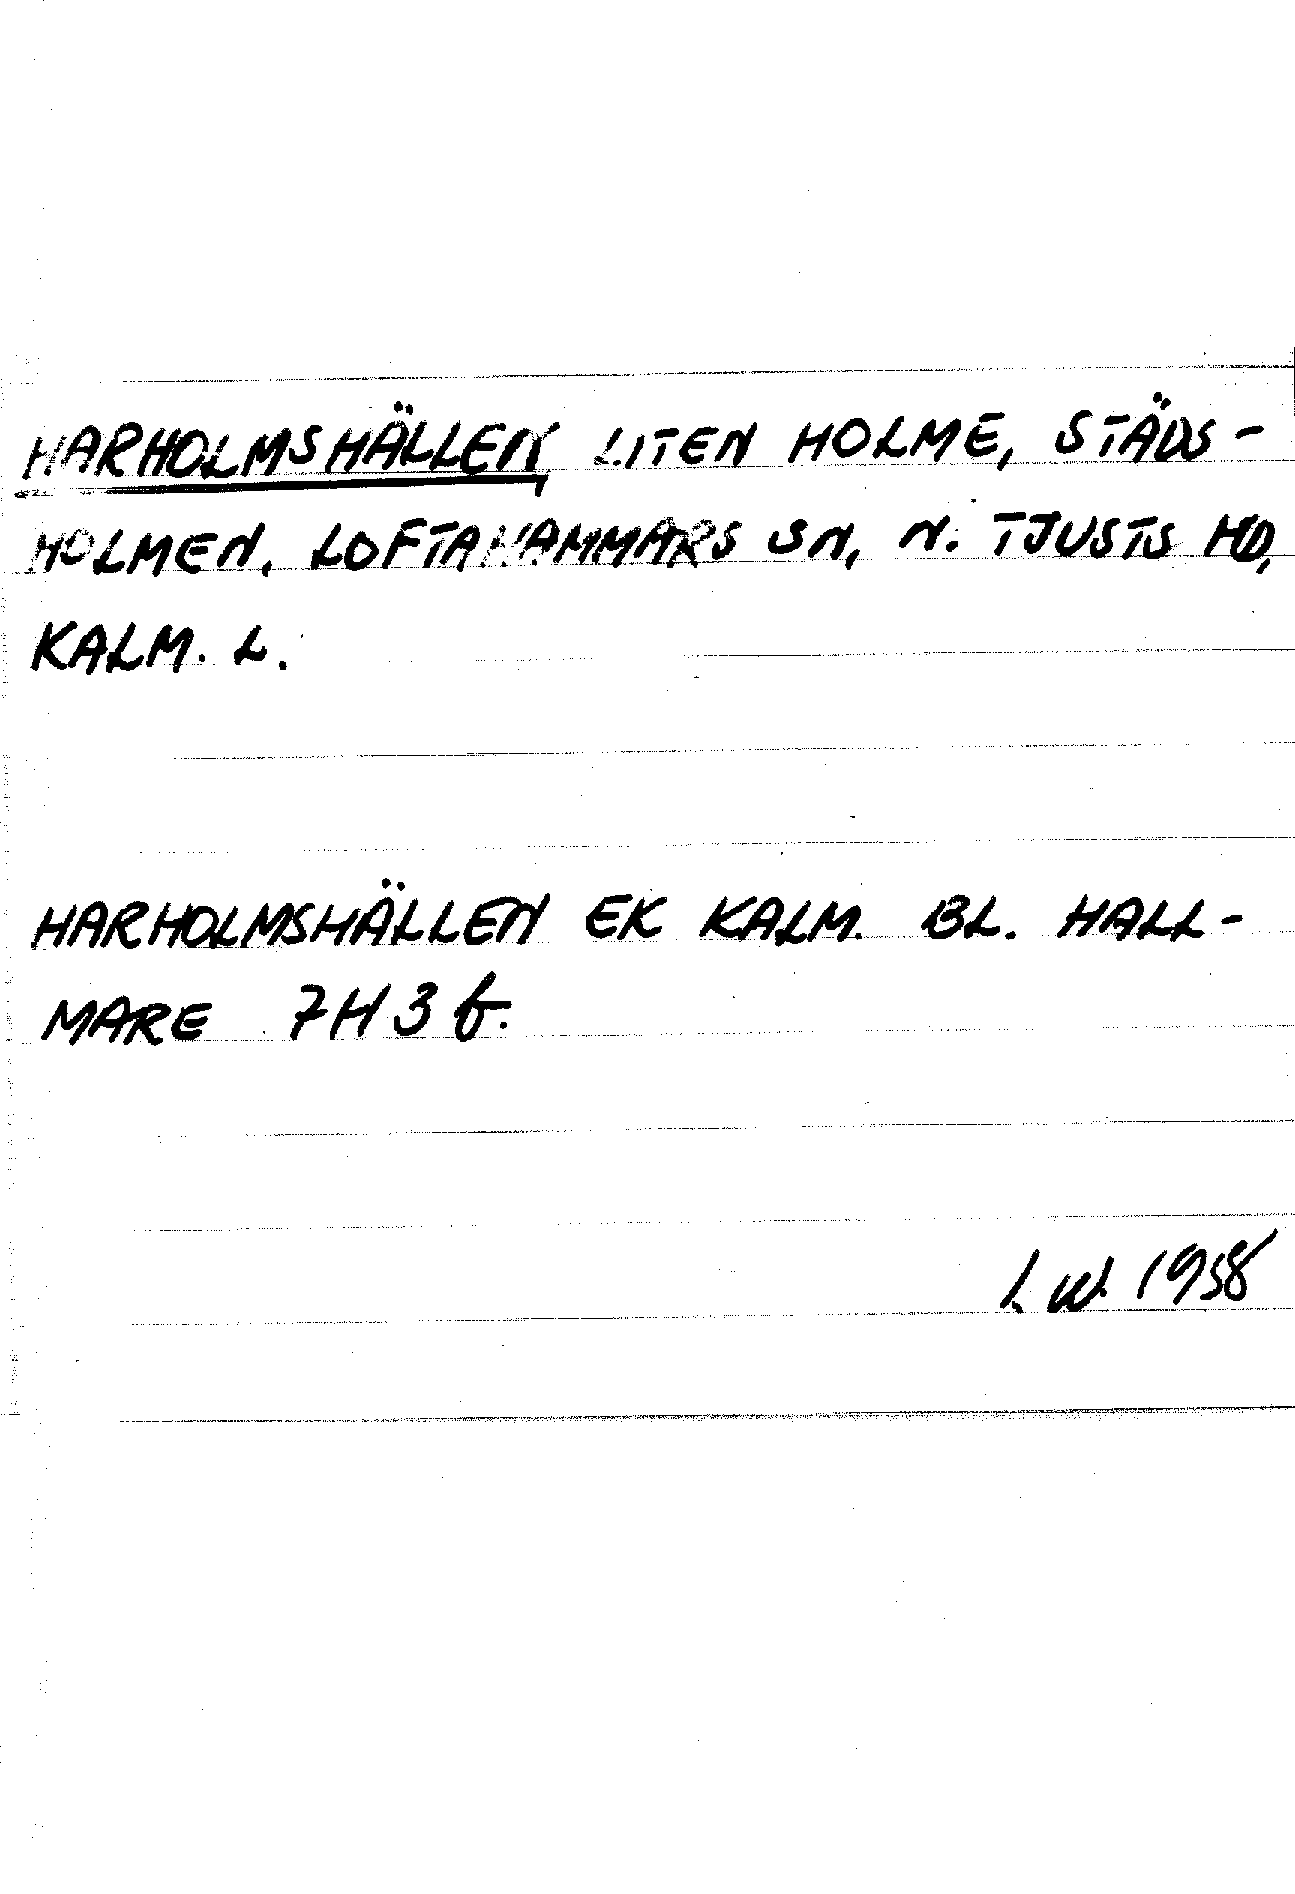 HARHOLMSHÄLLEN, LITEN HOLME, STÄDS-
HOLMEN, LOFTAHAMMARS SN, N. TJUSTS HD,
KALM. L.
HARHOLMSHÄLLEN EK KALM. BL. HALL-
MARE 7H3f.
L. W. 1958